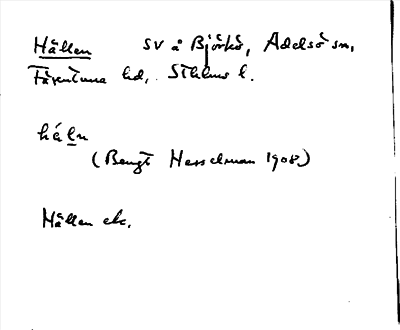 Hållen SV å Björkö, Adelsö sn,
Färentuna hd, Sthlms l.
håln
(Bengt Hesselman 1908)
Hållen etc.